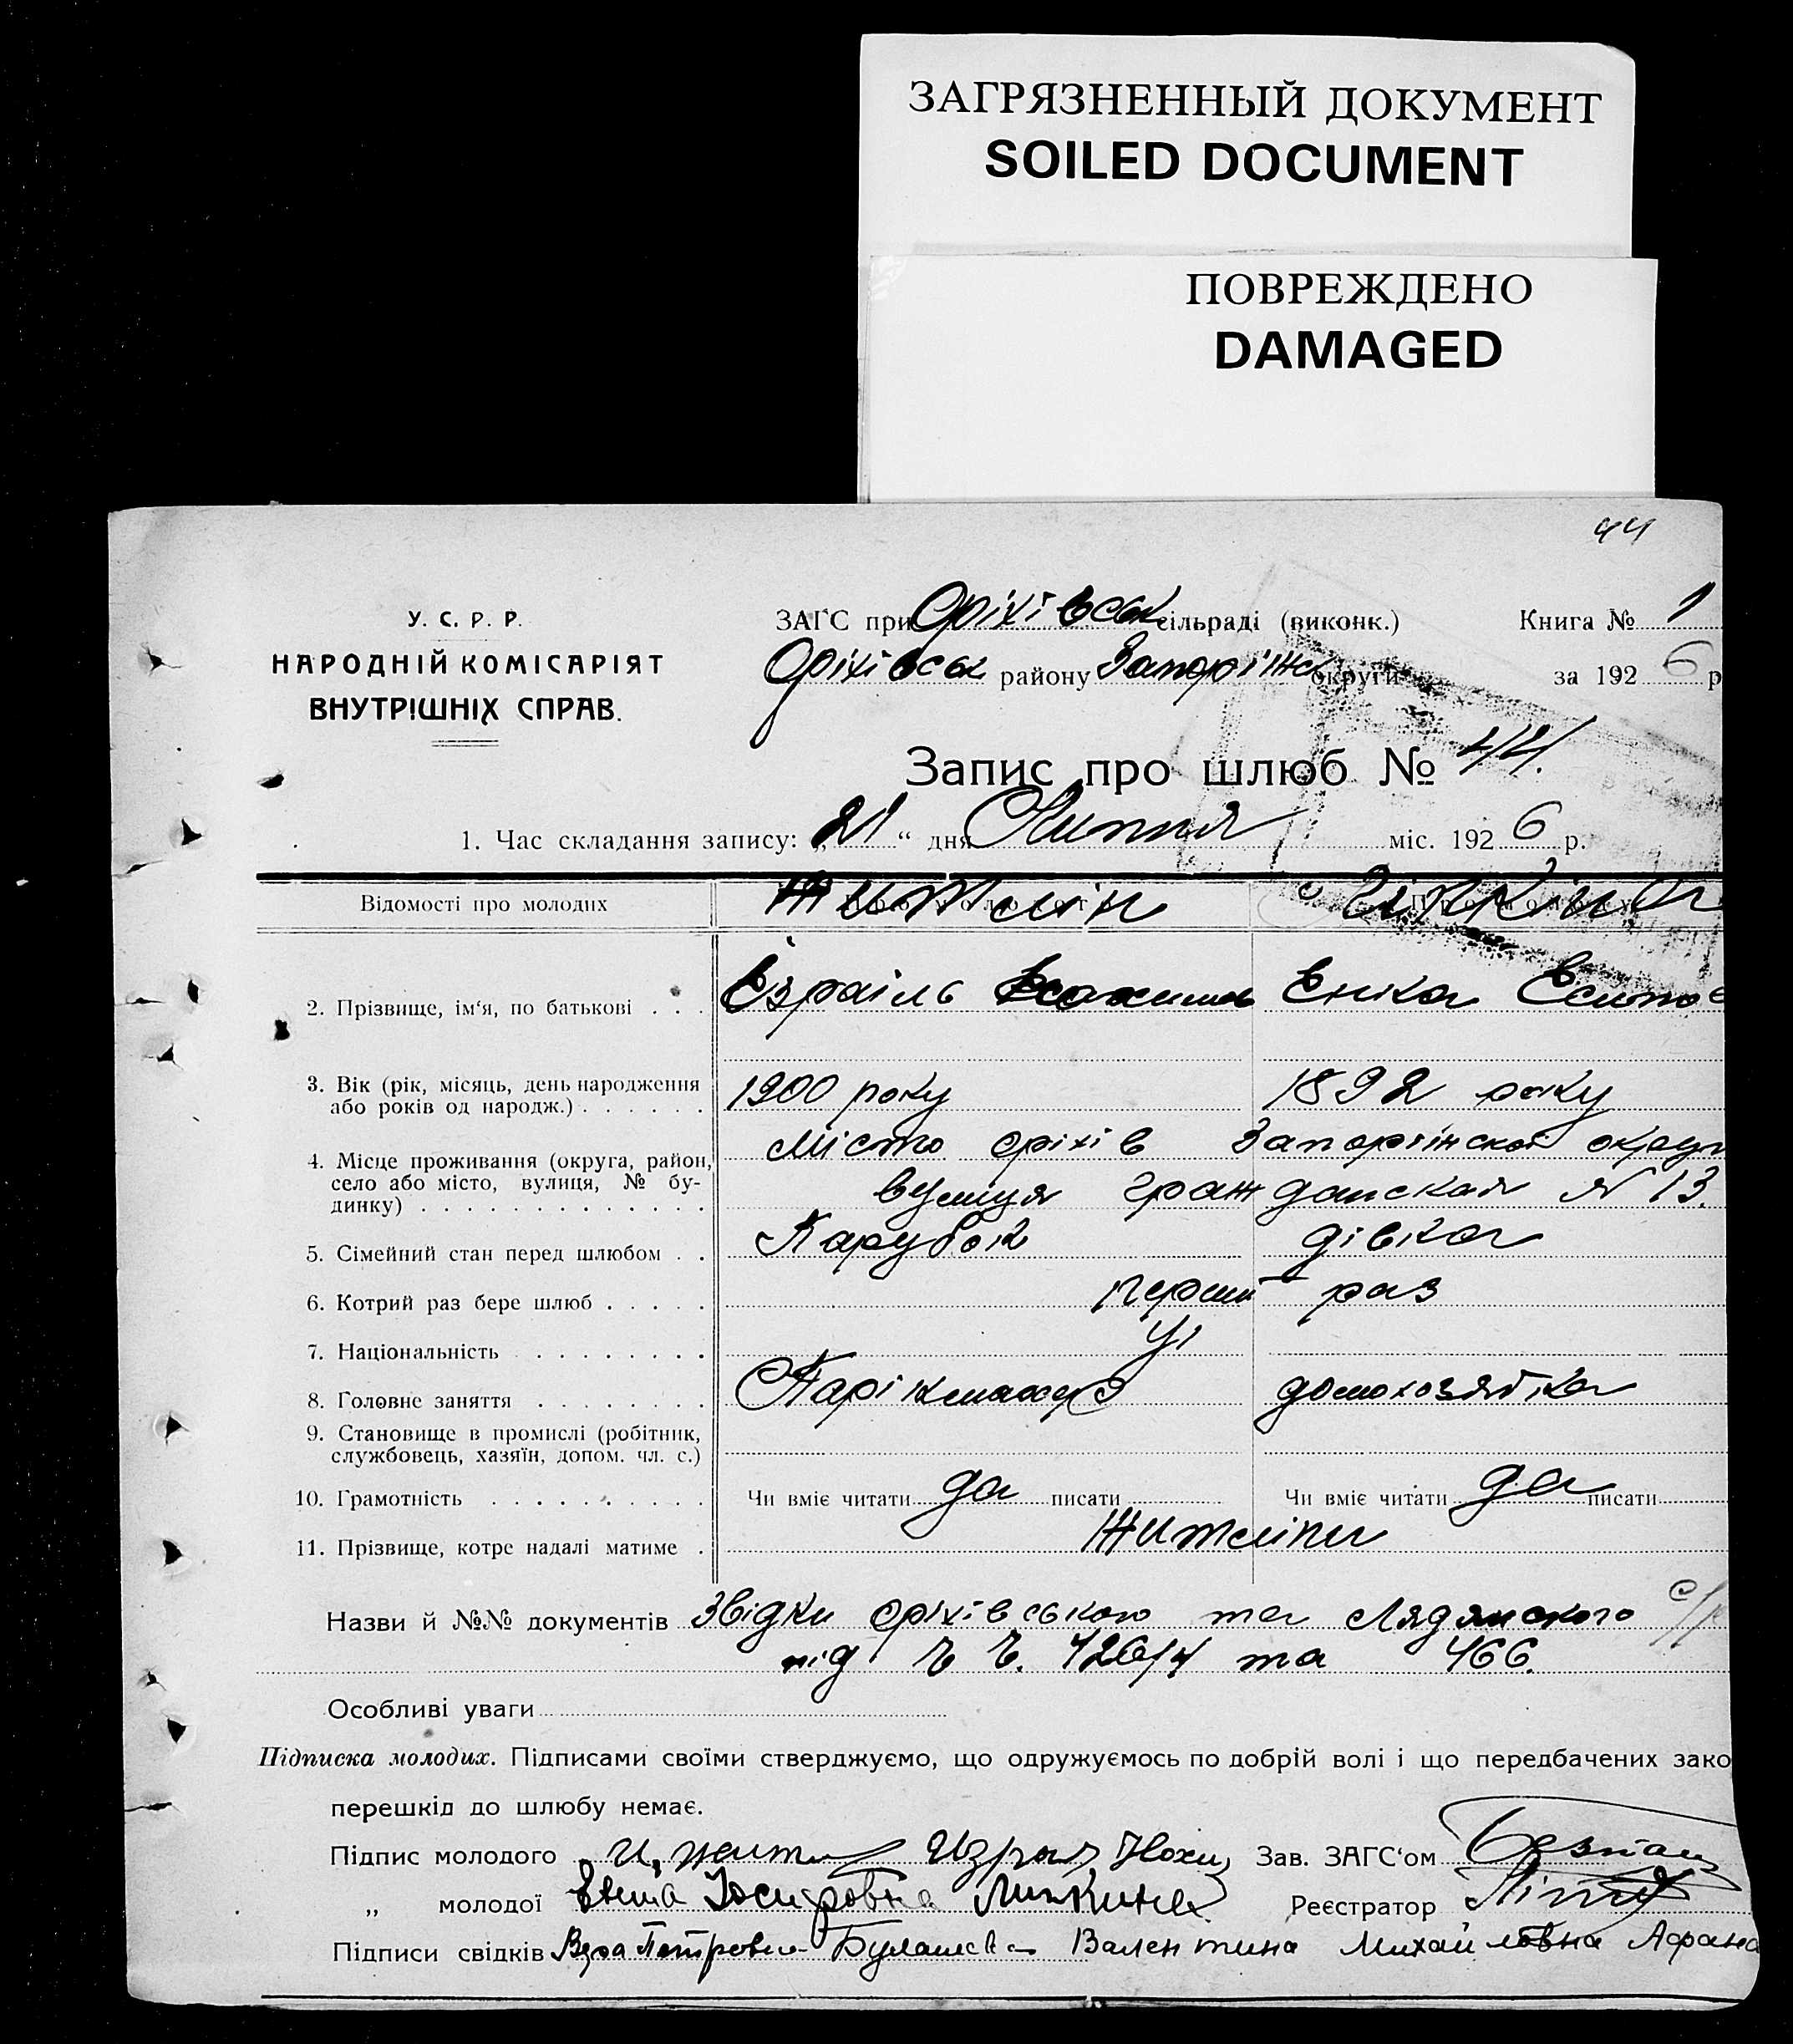 ЗАГРЯЗНЕННЫЙ ДОКУМЕНТ
SOILED DOCUMENT
ПОВРЕЖДЕНО
DAMAGED
44
У. С. Р. Р.
НАРОДНІЙ КОМІСАРІЯТ
ВНУТРІШНІХ СПРАВ.
ЗАГС при Оріхівськ сільраді (виконк.)
Книга № 1
Оріхівськ району Запоріжс округи
за 192 6 р
Запис про шлюб № 44.
1. Час складання запису: „ 21 “ дня Липня міс. 192 6 р.
Відомості про молодих
Житлін
2. Прізвище, ім‘я, по батькові . . . Ізраіль
3. Вік (рік, місяць, день народження
або років од народж.) . . . . . . 1900 року 1892 року
4. Місце проживання (округа, район,
село або місто, вулиця, № бу-
динку) . . . . . . . . . . . . .
Місто Оріхів Запорізнської округи
вулиця гражданская № 13.
5. Сімейний стан перед шлюбом . . Парубок дівка
6. Котрий раз бере шлюб . . . . . перший раз
7. Національність . . . . . . . .
8. Головне заняття . . . . . . . . Парікмахер домохозяйка
9. Становище в промислі (робітник,
службовець, хазяїн, допом. чл. с.)
10. Грамотність . . . . . . . . . Чи вміє читати да писати Чи вміє читати да писати
11. Прізвище, котре надалі матиме . Житліни
Назви й №№ документів Звідки Оріхівського та с/р
під ч ч. та 466.
Особливі уваги
Підписка молодих. Підписами своїми стверджуємо, що одружуємось по добрій волі і що передбачених зако
перешкід до шлюбу немає.
Підпис молодого И. Жит Зав. ЗАГС‘ом
„ молодої Иосифовна Реєстратор
Підписи свідків Вера Петровна Валентина Михайловна Афана